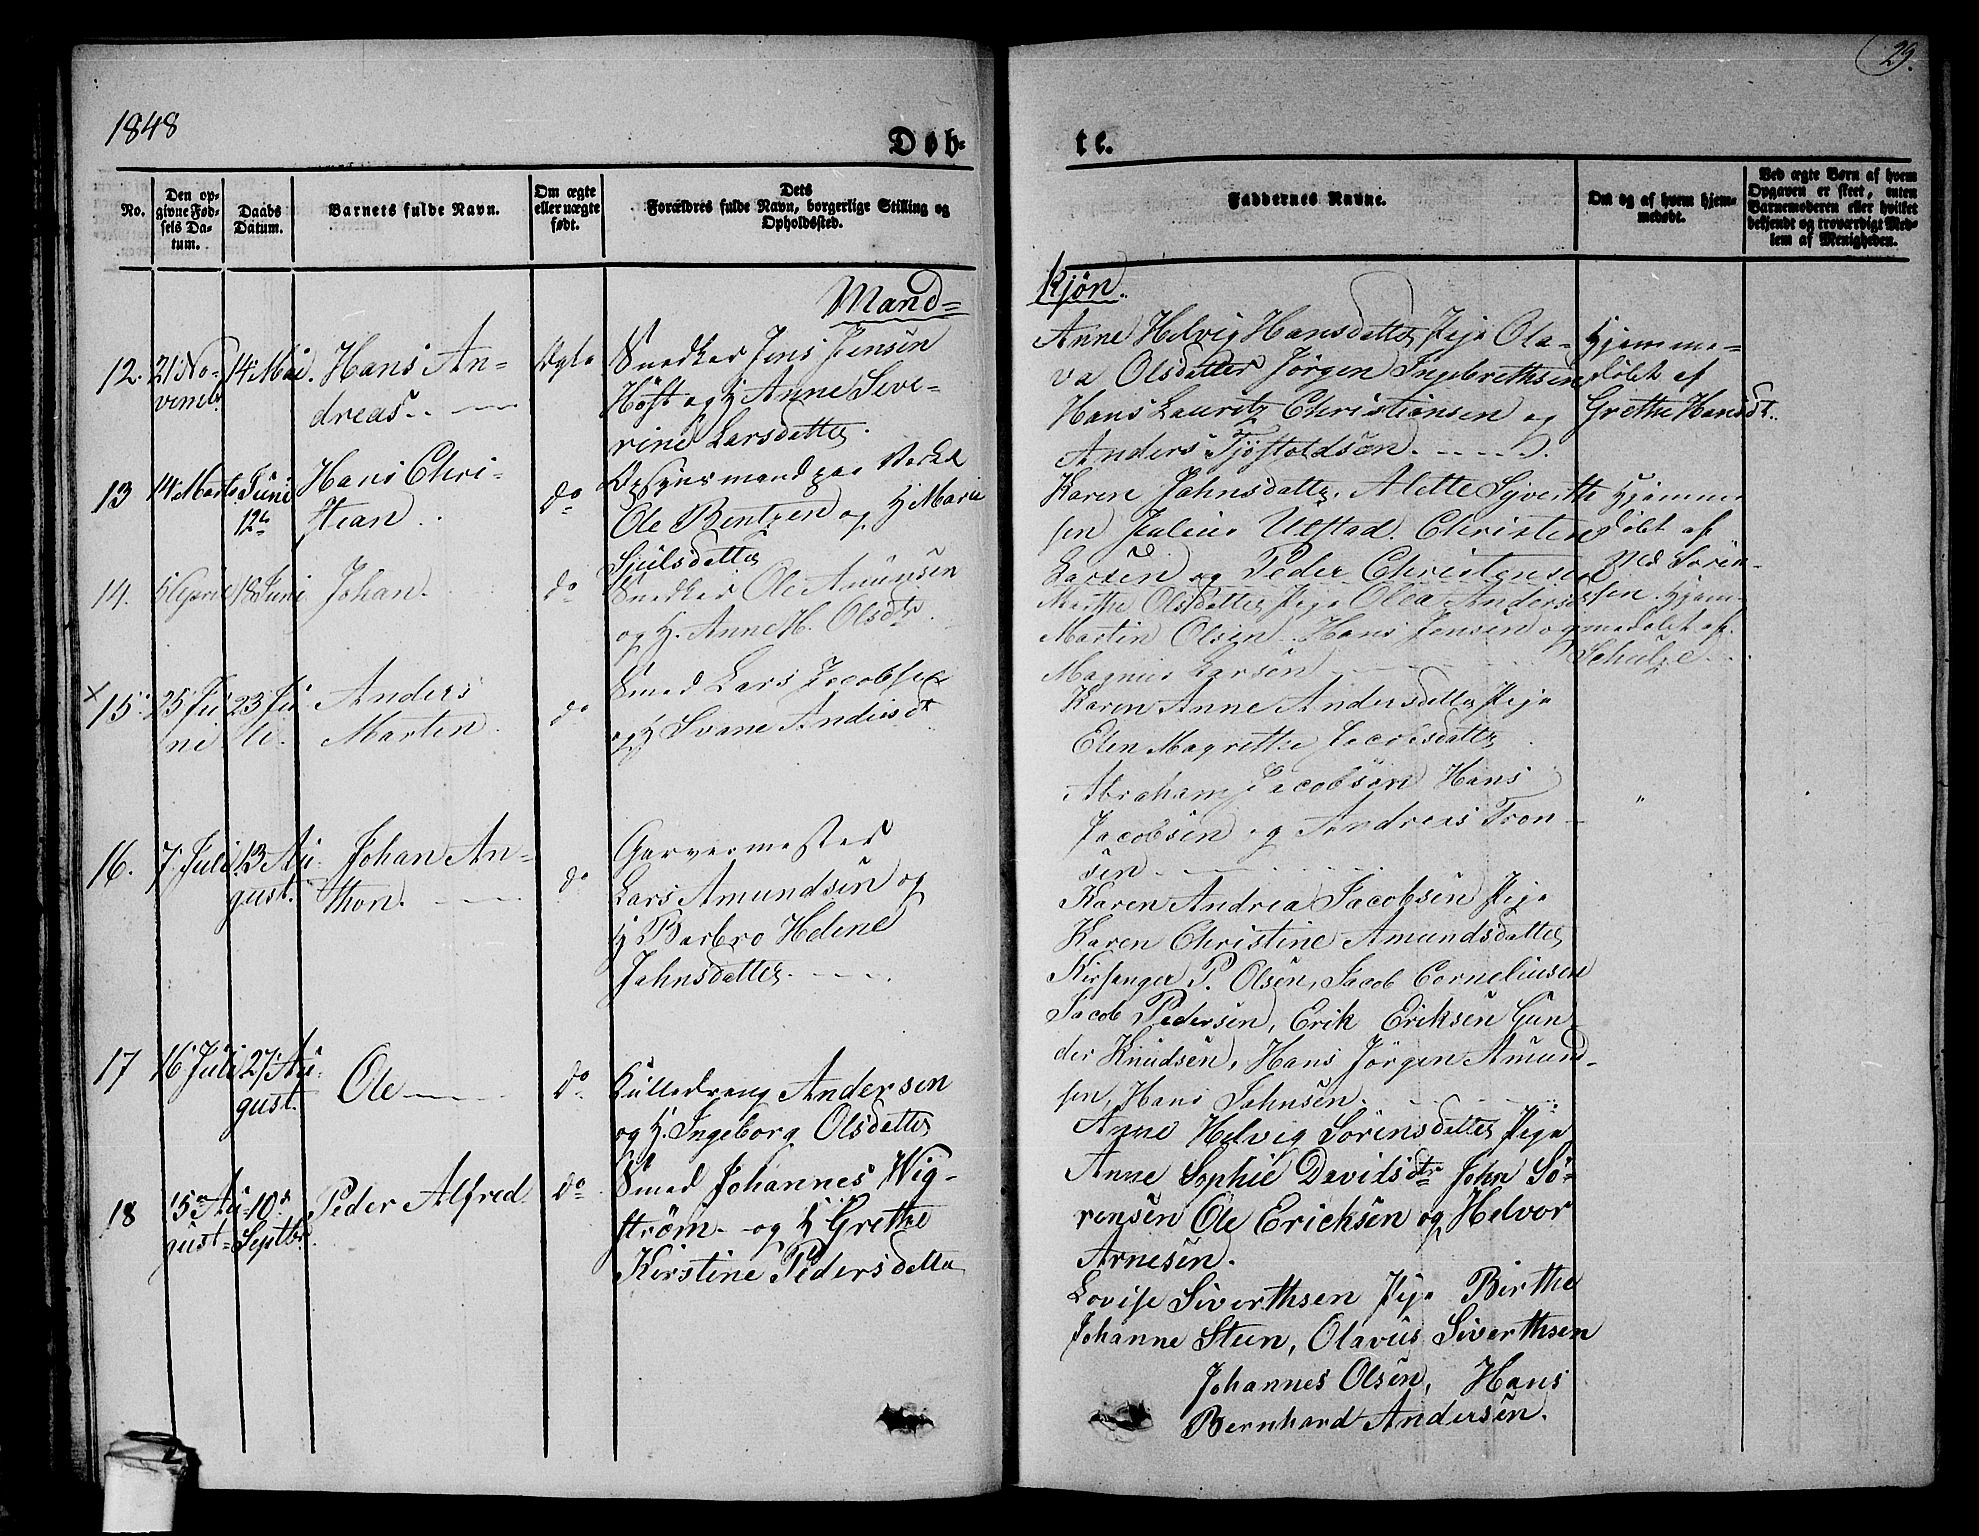 29.
1848
Døb-
te.
No.
Den op-
givne Fød-
sels Da-
tum.
Daabs
Datum.
Barnets fulde Navn.
Om ægte
eller uægte
født.
Dets
Forældres fulde Navn, borgerlige Stilling og
Opholdssted.
Faddernes Navne.
Om og af hvem hjem-
medøbt.
Ved ægte Børn af hvem
Opgaven er skeet, enten
Barnemoderen eller hvilket
bekjendt og troværdigt Med-
lem af Menigheden.
Mand=
Kjøn.
12.
21 No-
vembr
14 Mai.
Hans An-
dreas.
Ægte
Snedker Jens Jensen
Høft og H Anne Seve-
rine Larsdatter.
Anne Helvig Hansdatter Pige Ola-
va Olsdatter Jørgen Ingebrethsen
Hans Lauritz Christiansen og
Anders Tjøstoldsen.
Hjemme-
døbt af
Grethe Hansdt.
13
14 Marts
Juni
12te
Hans Chri-
stian
do
Opsynsmand paa Værket
Ole Bentzen og H Marie
Sjulsdatter
Karen Jahnsdatter. Alette Syverth-
sen Julius Ulstad. Christen
Larsen og Peder Christensen
Hjemme
døbt af
Mad Søren-
sen.
14.
5 April
18 Juni
Johan.
do
Snedker Ole Amunsen
og H. Anne M. Olsdtr.
Marthe Olsdatter Pige Olea Anders
Martin Olsen Hans Jensen og
Magnus Larsen
Hjem-
medøbt af
Schulze
x 15
25 Ju-
ni
23 Ju-
li.
Anders
Marten
do
Smed Lars Jacobsen
og H Svane Andersdt
Karen Anne Andersdatter Pige
Elen Magrethe Jacobsdatter
Abraham Jacobsen Hans
Jacobsen og Andreas Tron-
sen.
"
16.
7 Juli
13 Au-
gust.
Johan An-
thon.
do
Garvermester
Lars Amundsen og
H Barbro Helene
Jahnsdatter.
Karen Andrea Jacobsen Pige
Karen Christine Amundsdatter
Kirsanger P. Olsen, Jacob Corneliusen
Jacob Pedersen, Erik Eriksen Gun
der Knudsen, Hans Jørgen Amund-
sen, Hans Jahnsen.
17
16 Juli
27 Au-
gust.
Ole
do
Kulledreng Andersen
og H. Ingeborg Olsdatter
Anne Helvig Sørensdatter Pige
Anne Sophie Davidsdtr John Sø-
rensen Ole Ericksen og Helvor
Arnesen.
18
15 Au-
gust
10de
Septbr.
Peder Alfred
do
Smed Johannes Wig-
strøm og H Grethe
Kirstine Pedersdatter
Lovise Siverthsen Pige Birthe
Johanne Steen, Olavus Siverthsen
Johannes Olsen, Hans
Bernhard Andersen.